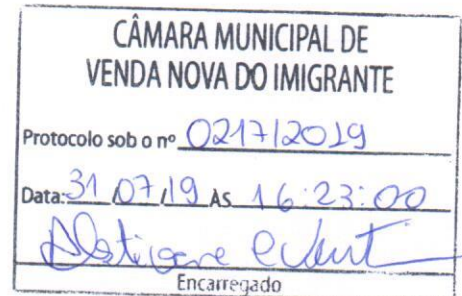 CÂMARA MUNICIPAL DE
VENDA NOVA DO IMIGRANTE
Protocolo sob o nº 0217/2019
Data: 31/07/19 ÀS 16:23:00
Encarregado